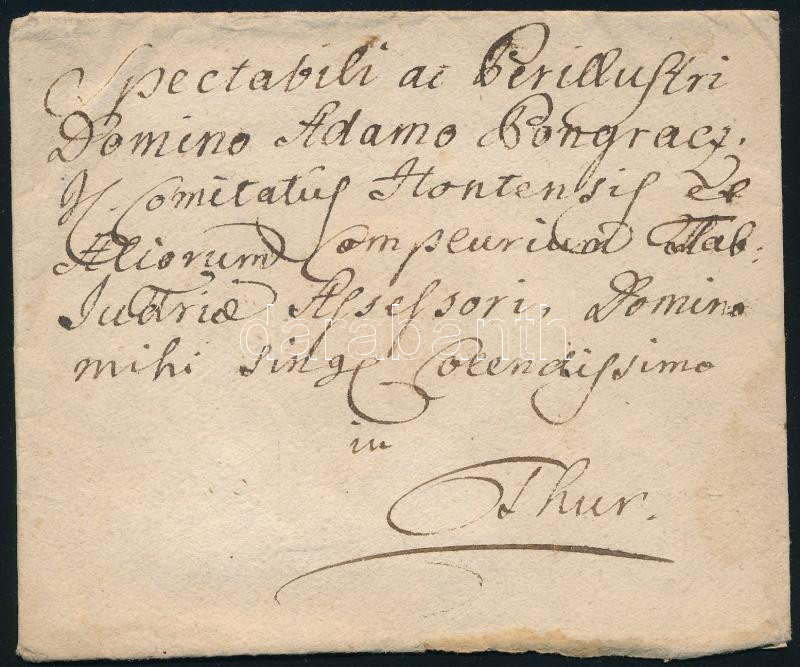 Spectabili ac Perillustri
Domino Adamo Pongracz.
I. Comitatus Hontensis et
Aliorum Complurium Tab:
Judriæ Assessori, Domino
mihi sing. Colendissimo
in
Thur.
darabanth